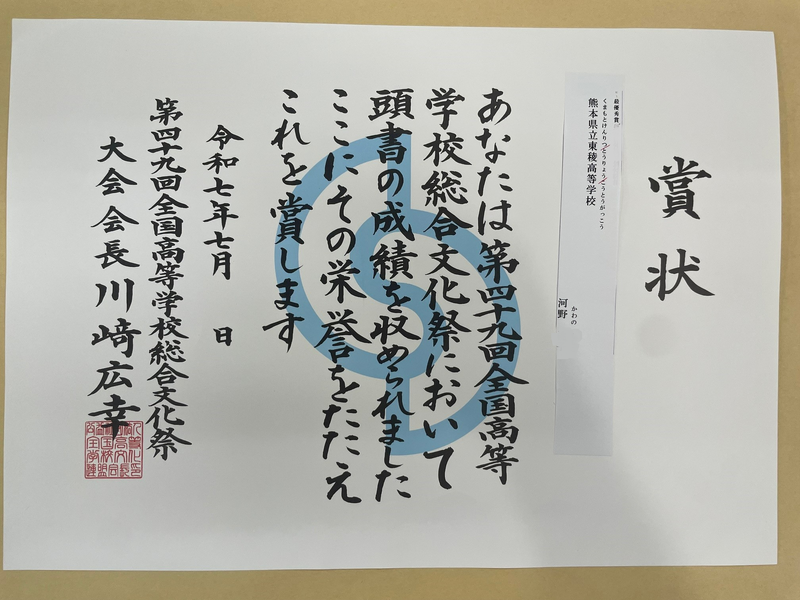 賞状
最優秀賞
くまもとけんりつとうりょうこうとうがっこう
熊本県立東稜高等学校
かわの
河野
あなたは第四十九回全国高等
学校総合文化祭において
頭書の成績を収められました
ここにその栄誉をたたえ
これを賞します
令和七年七月 日
第四十九回全国高等学校総合文化祭
大会会長川﨑広幸